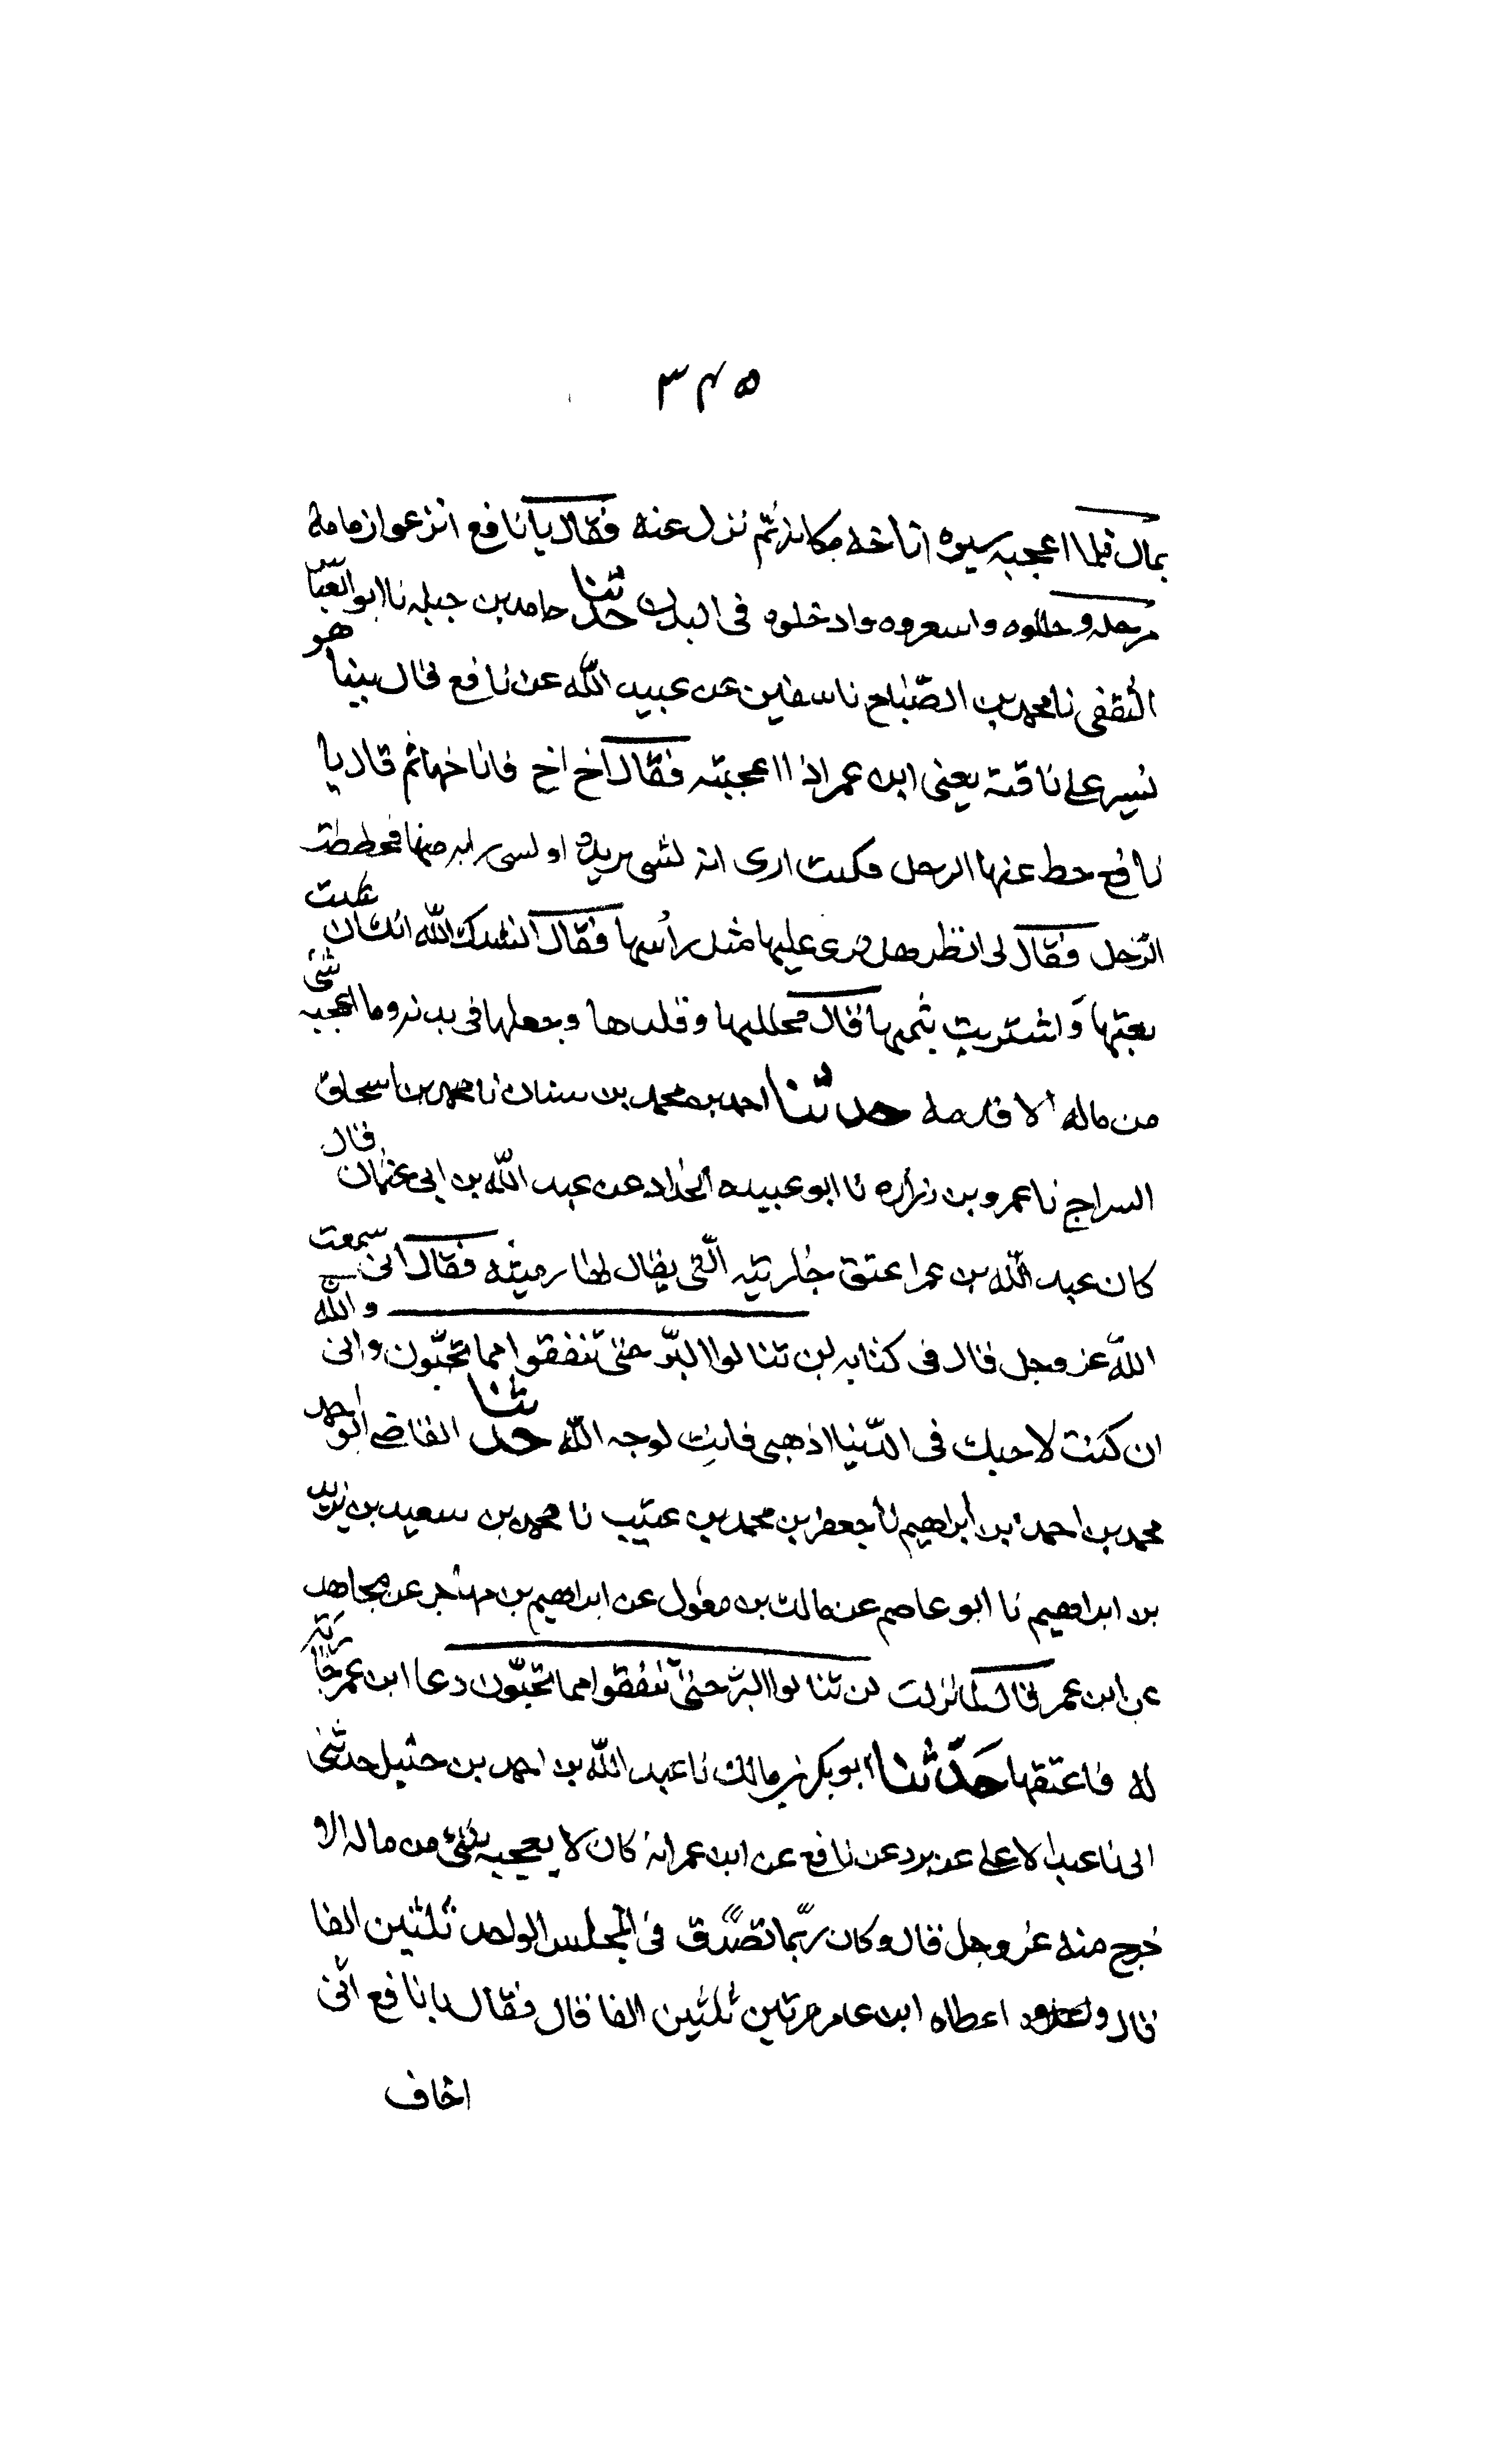 ۳۴۵
بمال فلما اعجبه سيره اناخه مكانه ثم نزل عنه فقال يا نافع انزعوا زمامه
مرحله وحللوه واسعروه وادخلوه فى البدن حدثنا حامد بن جبله نا ابو العبّاس
الثقفى نا محمد بن الصّباح نا سفين عن عبيد الله عن نافع قال بينا هو
نسير على ناقة يعنى ابن عمر اذا اعجبته فقال اخ اخ فاناخها ثم قال يا
نافع حط عنها الرحل فكنت ارى انه لشى يريده او لسى رابه منها فحططت
الرّحل فقال لى انظر هل ترى عليها مثل رأسها فقال انشدك الله انك ان شئت
بعتها وَاشتريت بثمنها قال فحللها وقلدها وجعلها فى بدنه وما اعجبه شئى
من ماله الا قدمه حدثنا احمد بن محمد بن سنان نا محمد بن اسحاق
السراج نا عمرو بن زراره نا ابو عبيده الحداد عن عبد الله بن ابى عثمان قال
كان عبد الله بن عمر اعتق جاريته الّتى يقال لها رميثه فقال انى سمعت
اللّه عز وجل قال فى كتابه لن تنالوا البرّ حتى تنفقوا مما تحبّون وانى والله
ان كنت لاحبك فى الدّنيا اذهبى فانتِ لوجه اللّه حدثنا القاضى ابو احمد
محمد بن احمد بن ابراهيم نا جعفر بن محمد بن عتيب نا محمد بن سعيد بن يزيد
بن ابراهيم نا ابو عاصم عن مالك بن مغول عن ابراهيم بن مهاجر عن مجاهد
عن ابن عمر قال لما نزلت لن تنالوا البرّ حتىّ تنفقوا مما تحبّون دعا ابن عمر جاريته
له فاعتقها حَدّثنا ابو بكر بن مالك نا عبد الله بن احمد بن حنبل حدثنى
ابى نا عبد الاعلى عن برد عن نافع عن ابن عمر انه كان لا يعجبه شئى من ماله الا و
خرج منه عز وجل قال وكان ربّما تصدّق فى المجلس الواحد ثلثين الفا
قال و اعطاه ابن عامر مرتين ثلثين الفا قال فقال يا نافع انّى
اخاف